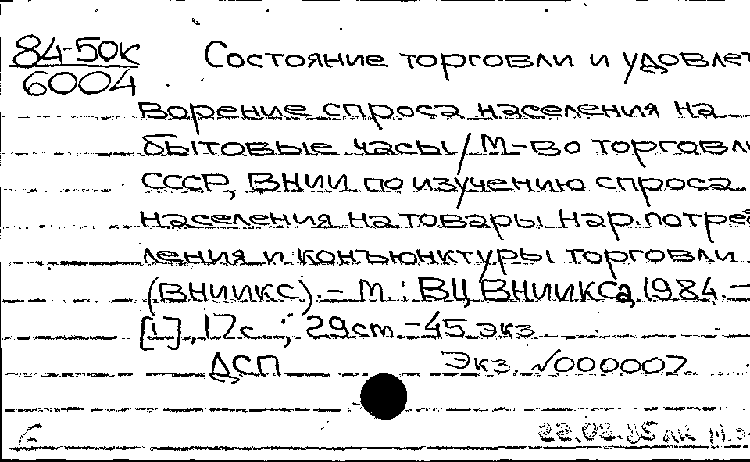 84-50к Состояние торговли и удовлет
6004
ворение спроса населения на
бытовые часы / М-во торговли
СССР, ВНИИ по изучению спроса
населения на товары нар. потреб
ления и конъюнктуры торговли
(ВНИИКС). – М.: ВЦ ВНИИКСа, 1984. –
[1], 17с.; 29см. – 45 экз.
ДСП Экз. №000007